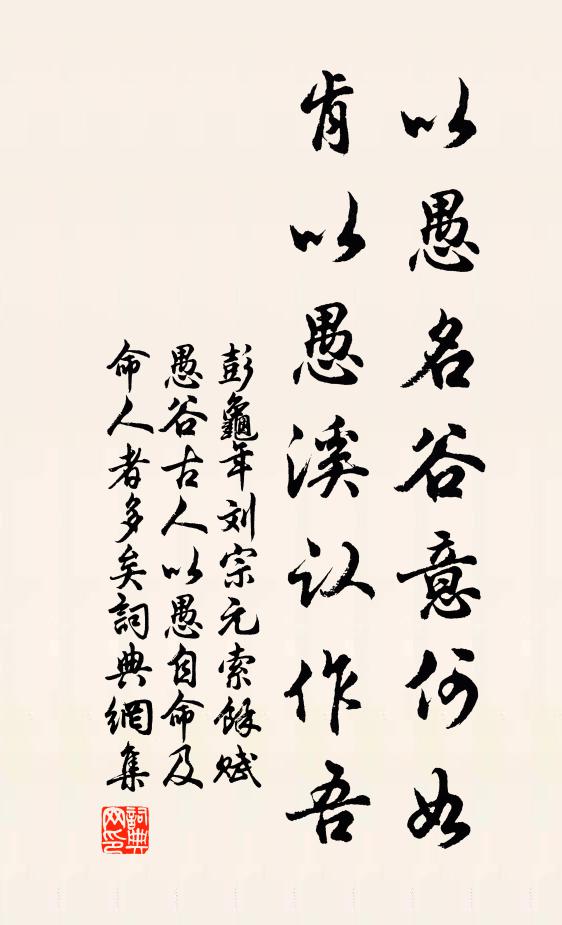 以愚名谷意何如
肯以愚溪认作吾
彭龜年刘宗元索餘赋
愚谷古人以愚自命及
命人者多矣詞典網集
詞典
网印